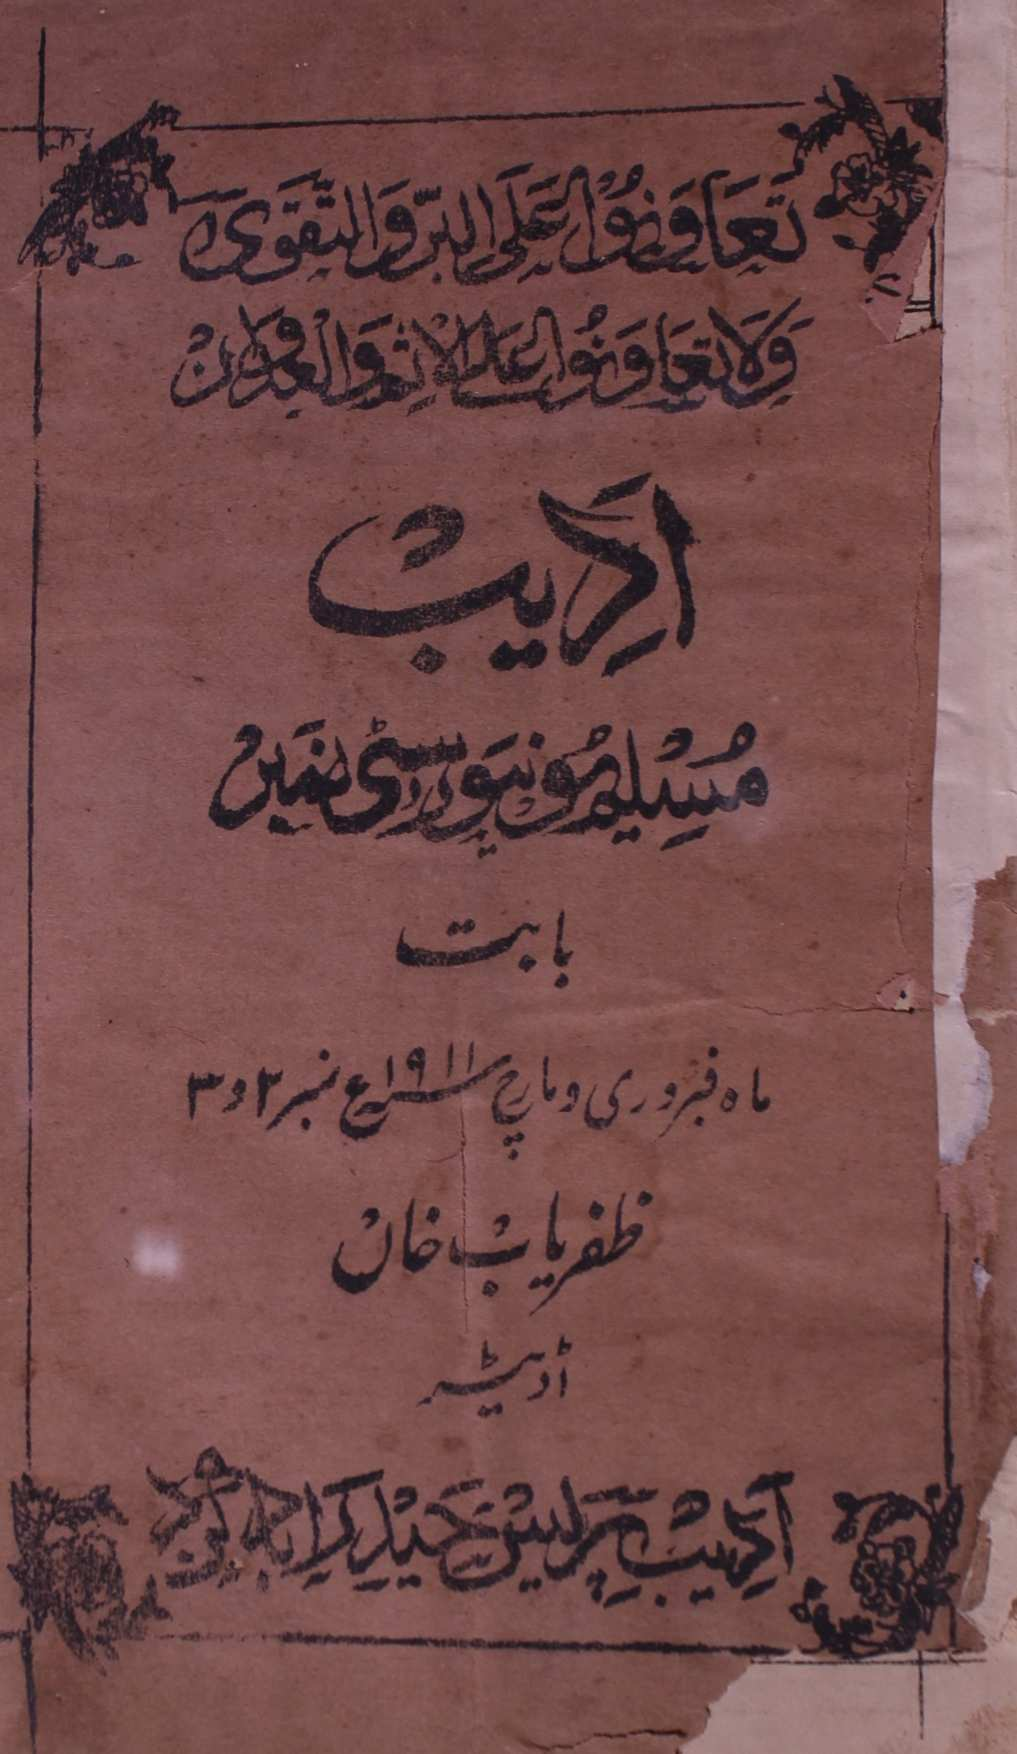 تَعَاوَنُوْا عَلَى البِرِّ وَالتَّقْوَىٰ
وَلَا تَعَاوَنُوْا عَلَى الْاِثْمِ وَالْعُدْوَانْ
اَدِیبْ
مُسْلِیمْ یُونِیوَرسٹی نمبرْ
بابت
ماہ فبروری و مارچ ۱۹۱۱ع نمبر ۲ و ۳
ظفریابْ خانْ
اڈیٹر
اَدِیبْ پَرِیسْ حَیدْرآباد دکن